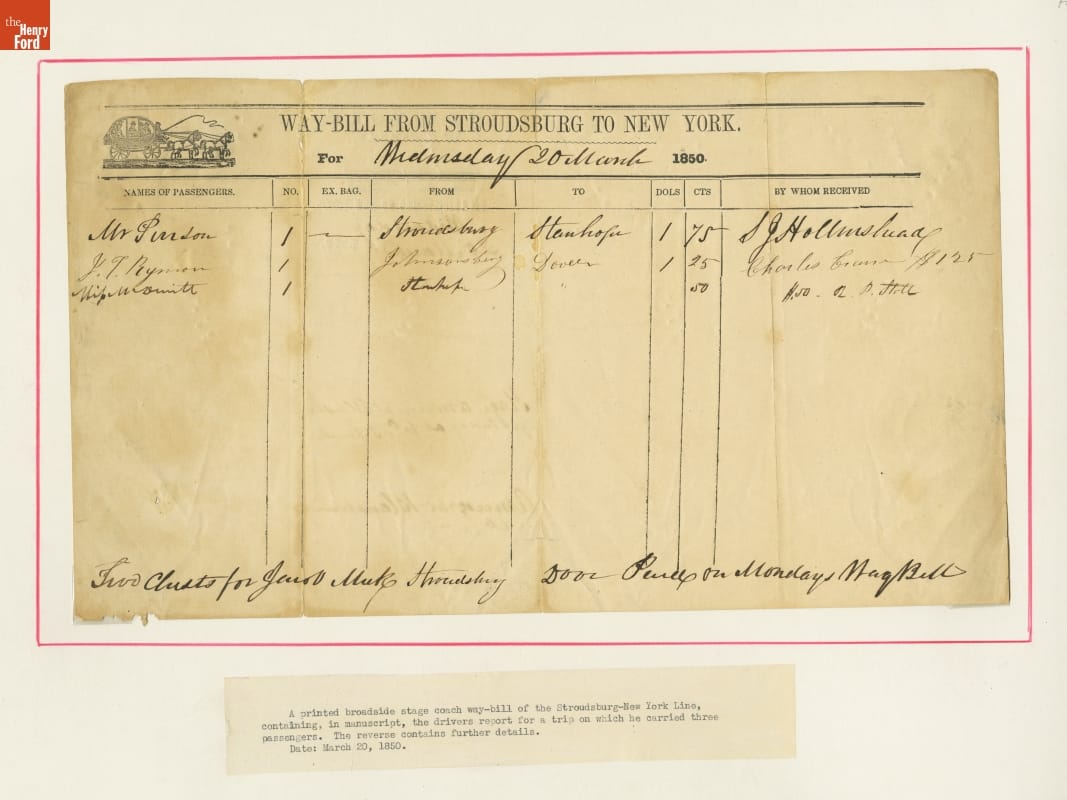 the
Henry
Ford
WAY-BILL FROM STROUDSBURG TO NEW YORK.
For Wednesday 20 March 1850.
NAMES OF PASSENGERS. NO. EX. BAG. FROM TO DOLS CTS BY WHOM RECEIVED
Mr 1 — Stroudsburg Stanhope 1 75 S J Hollinshead
1 Johnsonsburg Dover 1 25 Charles $1 25
Miss 1 Stanhope " 50 $.50
Two Chests for Stroudsburg Dover on Mondays Way Bill
A printed broadside stage coach way-bill of the Stroudsburg-New York Line,
containing, in manuscript, the drivers report for a trip on which he carried three
passengers. The reverse contains further details.
Date: March 20, 1850.